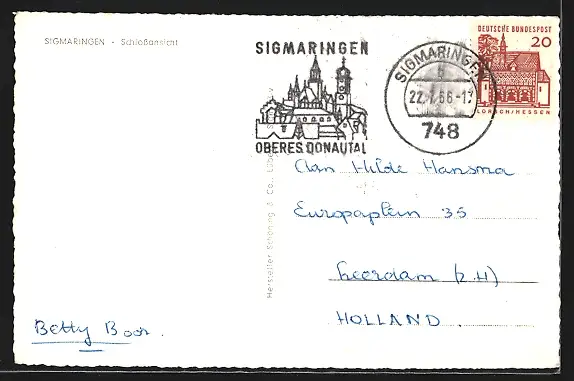 SIGMARINGEN - Schloßansicht
SIGMARINGEN
OBERES DONAUTAL
SIGMARINGEN
b
22.7.66-17
748
DEUTSCHE BUNDESPOST
20
LORSCH/HESSEN
Hersteller Schöning & Co., Lübeck
Aan Hilde Hansma
Europaplein 35
Leerdam (z.H)
HOLLAND.
Betty Boon.